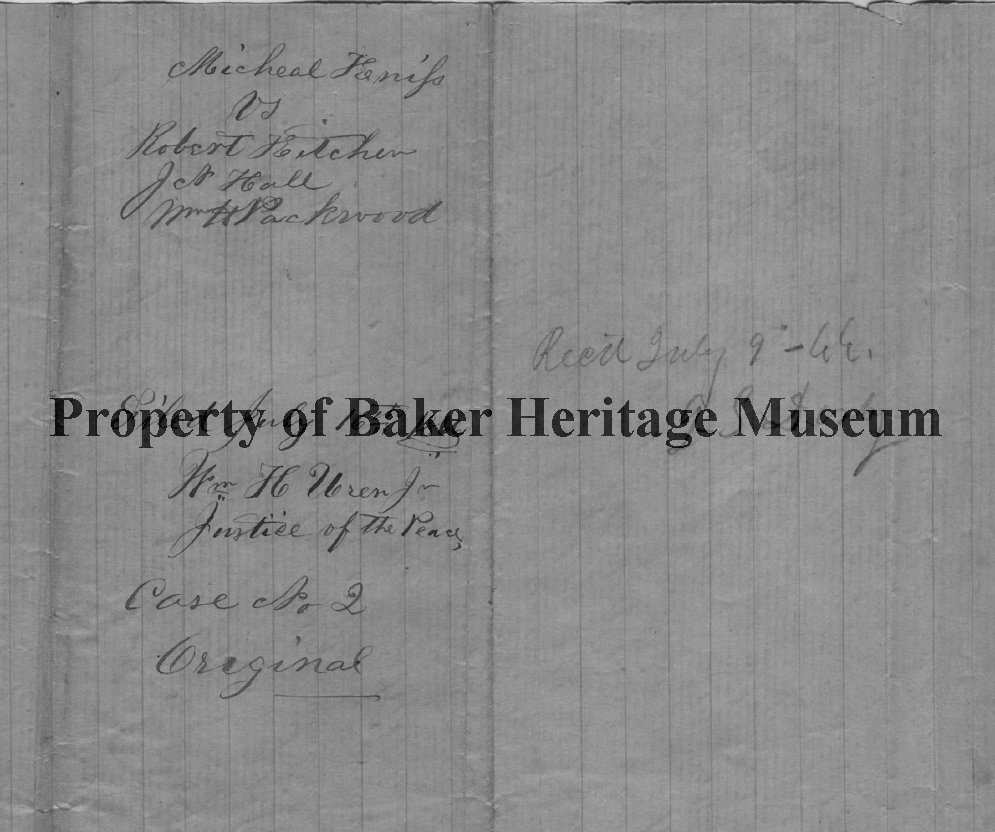 Micheal Heniss
Vs
Robert Kitchen
J N Hall
Wm H Packwood
Filed July
Wm H Uren Jr
Justice of the Peace
Case No 2
Original
Rec'd July 9" - 66.
Property of Baker Heritage Museum